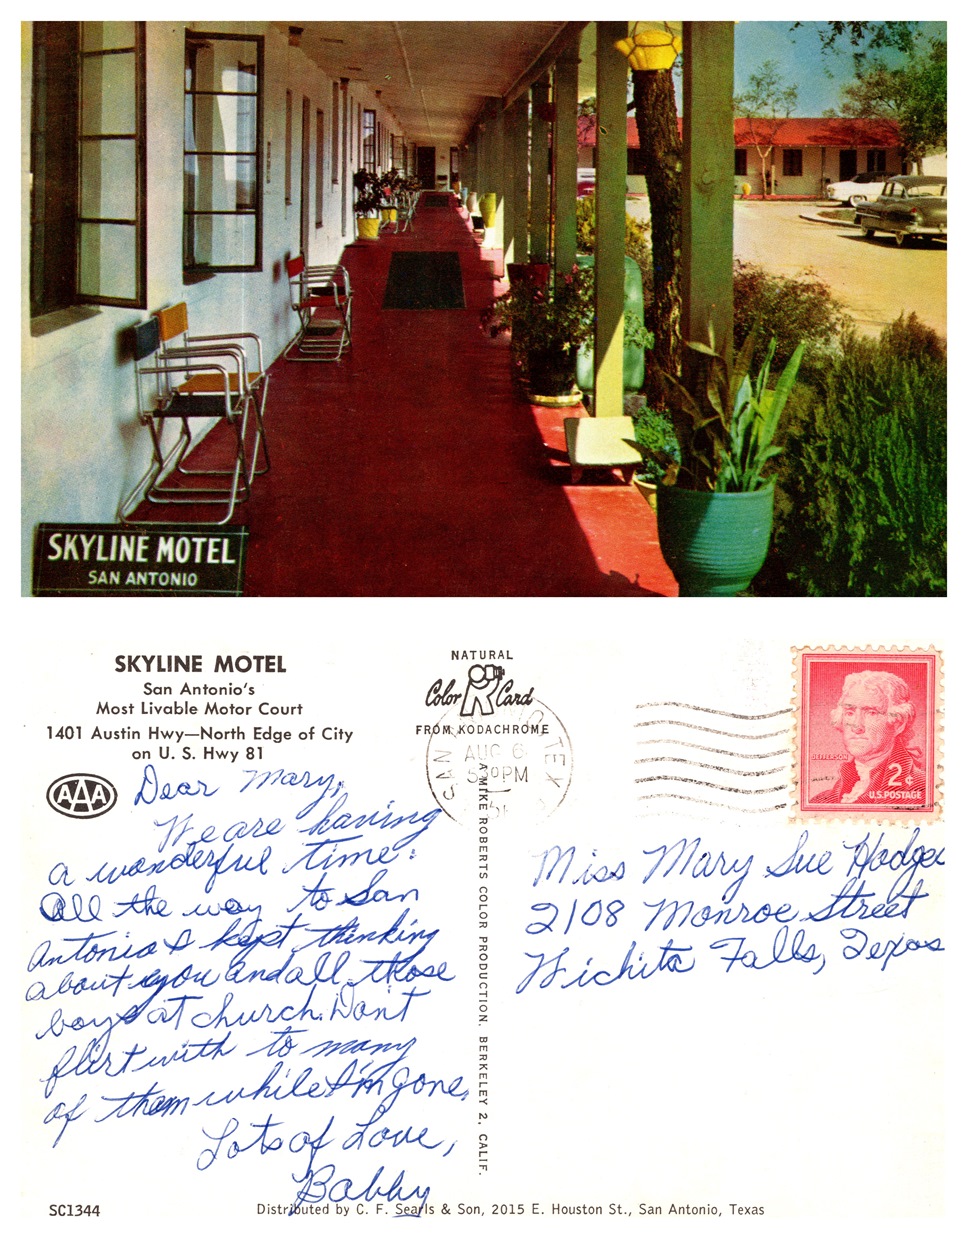 SKYLINE MOTEL
SAN ANTONIO
SKYLINE MOTEL
San Antonio's
Most Livable Motor Court
1401 Austin Hwy—North Edge of City
on U. S. Hwy 81
AAA
NATURAL
Color Card
FROM KODACHROME
SAN TEX
AUG 6
530PM
JEFFERSON
2¢
U.S. POSTAGE
Dear Mary,
We are having
a wonderful time.
All the way to San
Antonio I kept thinking
about you and all those
boys at church. Don't
flirt with to many
of them while I'm gone.
Lots of Love,
Bobby
MIKE ROBERTS COLOR PRODUCTION. BERKELEY 2, CALIF.
Miss Mary Sue Hodges
2108 Monroe Street
Wichita Falls, Texas
SC1344
Distributed by C. F. Searls & Son, 2015 E. Houston St., San Antonio, Texas